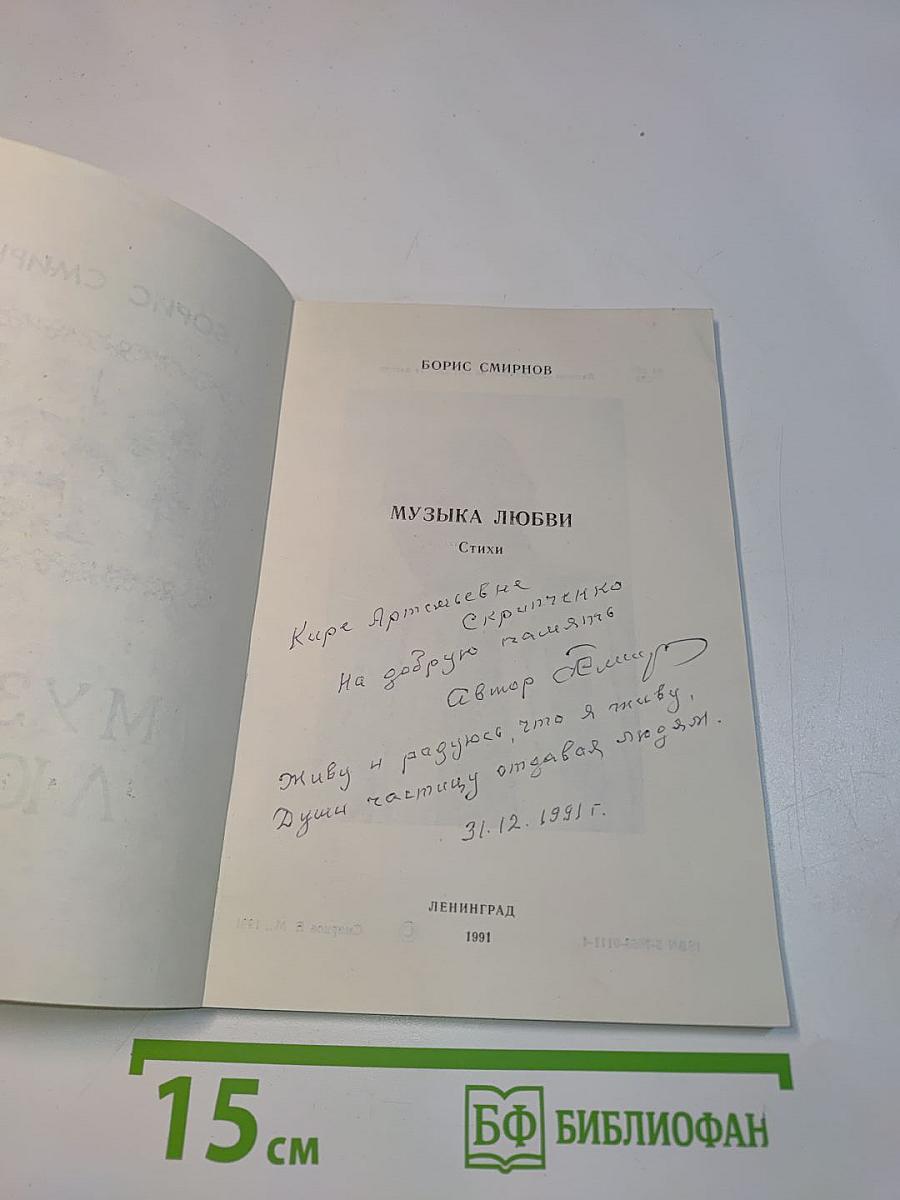 БОРИС СМИРНОВ
МУЗЫКА ЛЮБВИ
Стихи
Кире Артемьевне
Скрипченко
На добрую память
Автор
Живу и радуюсь, что я живу,
Души частицу отдавая людям.
31.12.1991 г.
ЛЕНИНГРАД
1991
15 см
БФ БИБЛИОФАН